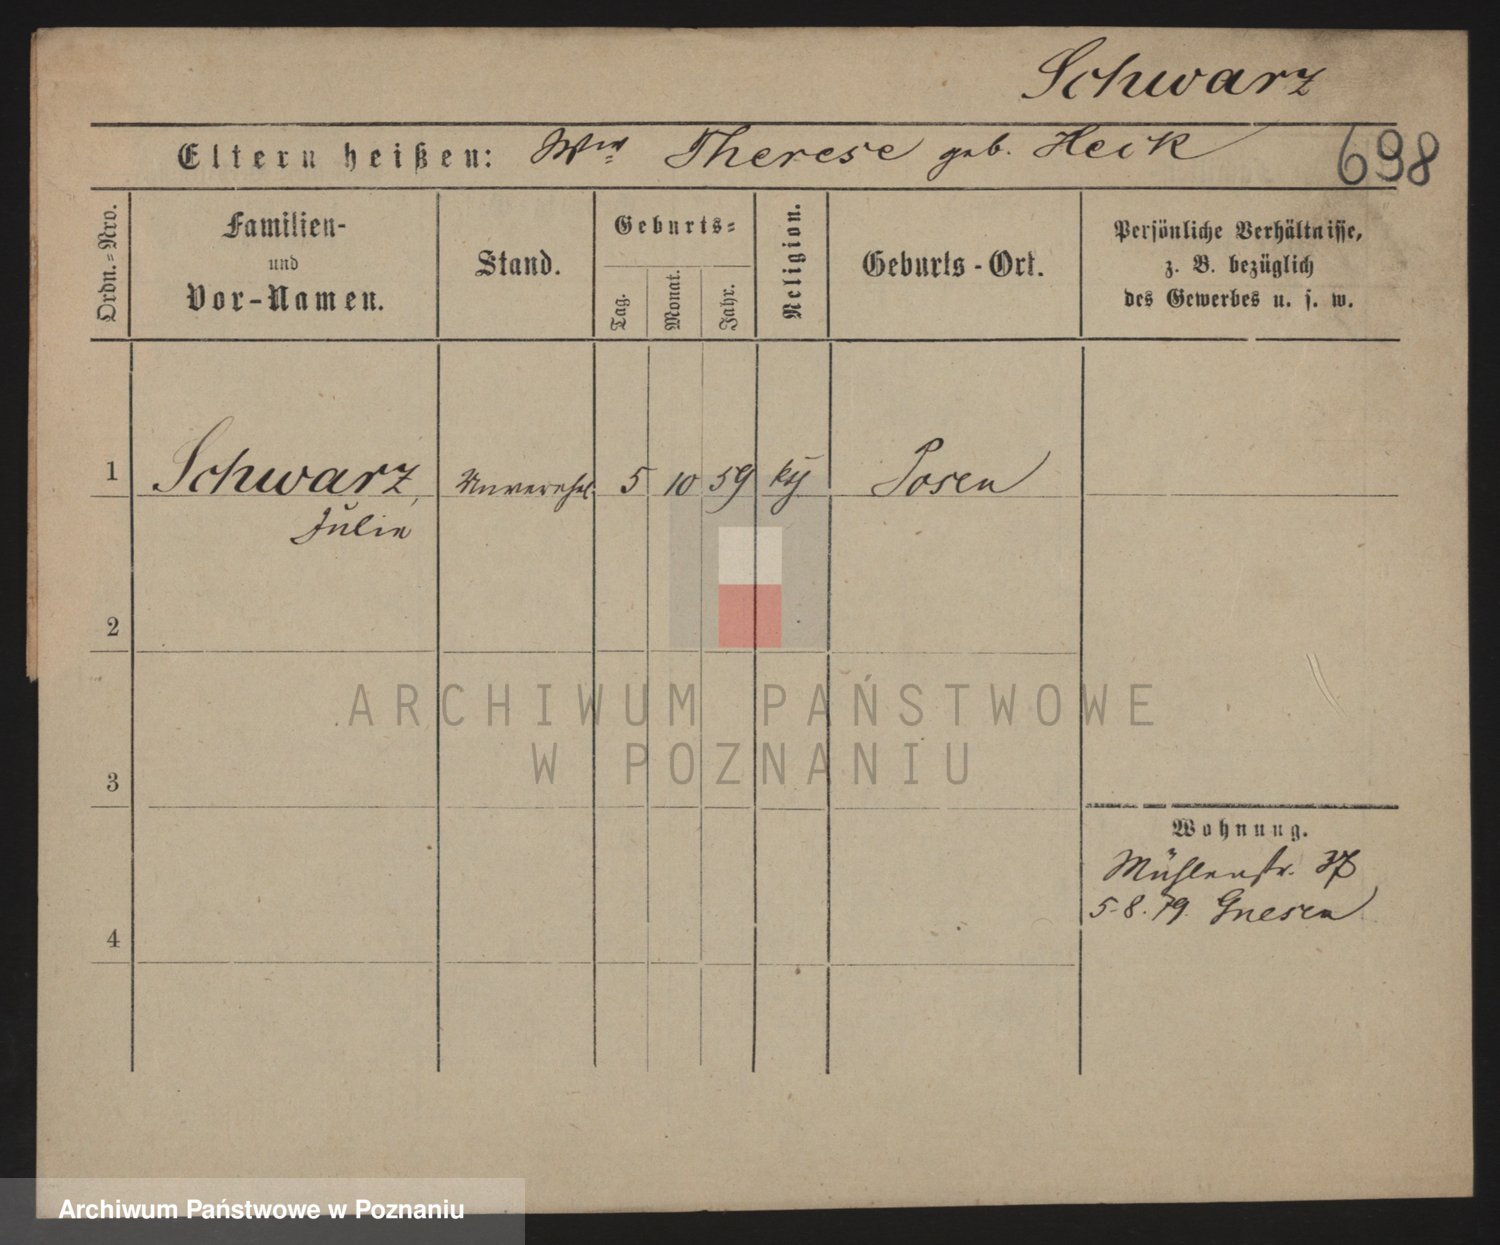 Schwarz
Eltern heißen: Wwe Therese geb. Heik
698
Ordn.-Nro.
Familien-
und
Vor-Namen.
Stand.
Geburts-
Tag.
Monat.
Jahr.
Religion.
Geburts-Ort.
Persönliche Verhältnisse,
z. B. bezüglich
des Gewerbes u. s. w.
1 Schwarz, Unverehel. 5 10 59 Posen
Julie
2
3
4
Wohnung.
Mühlenstr. 37
5.8.79. Gnesen
ARCHIWUM PAŃSTWOWE
W POZNANIU
Archiwum Państwowe w Poznaniu